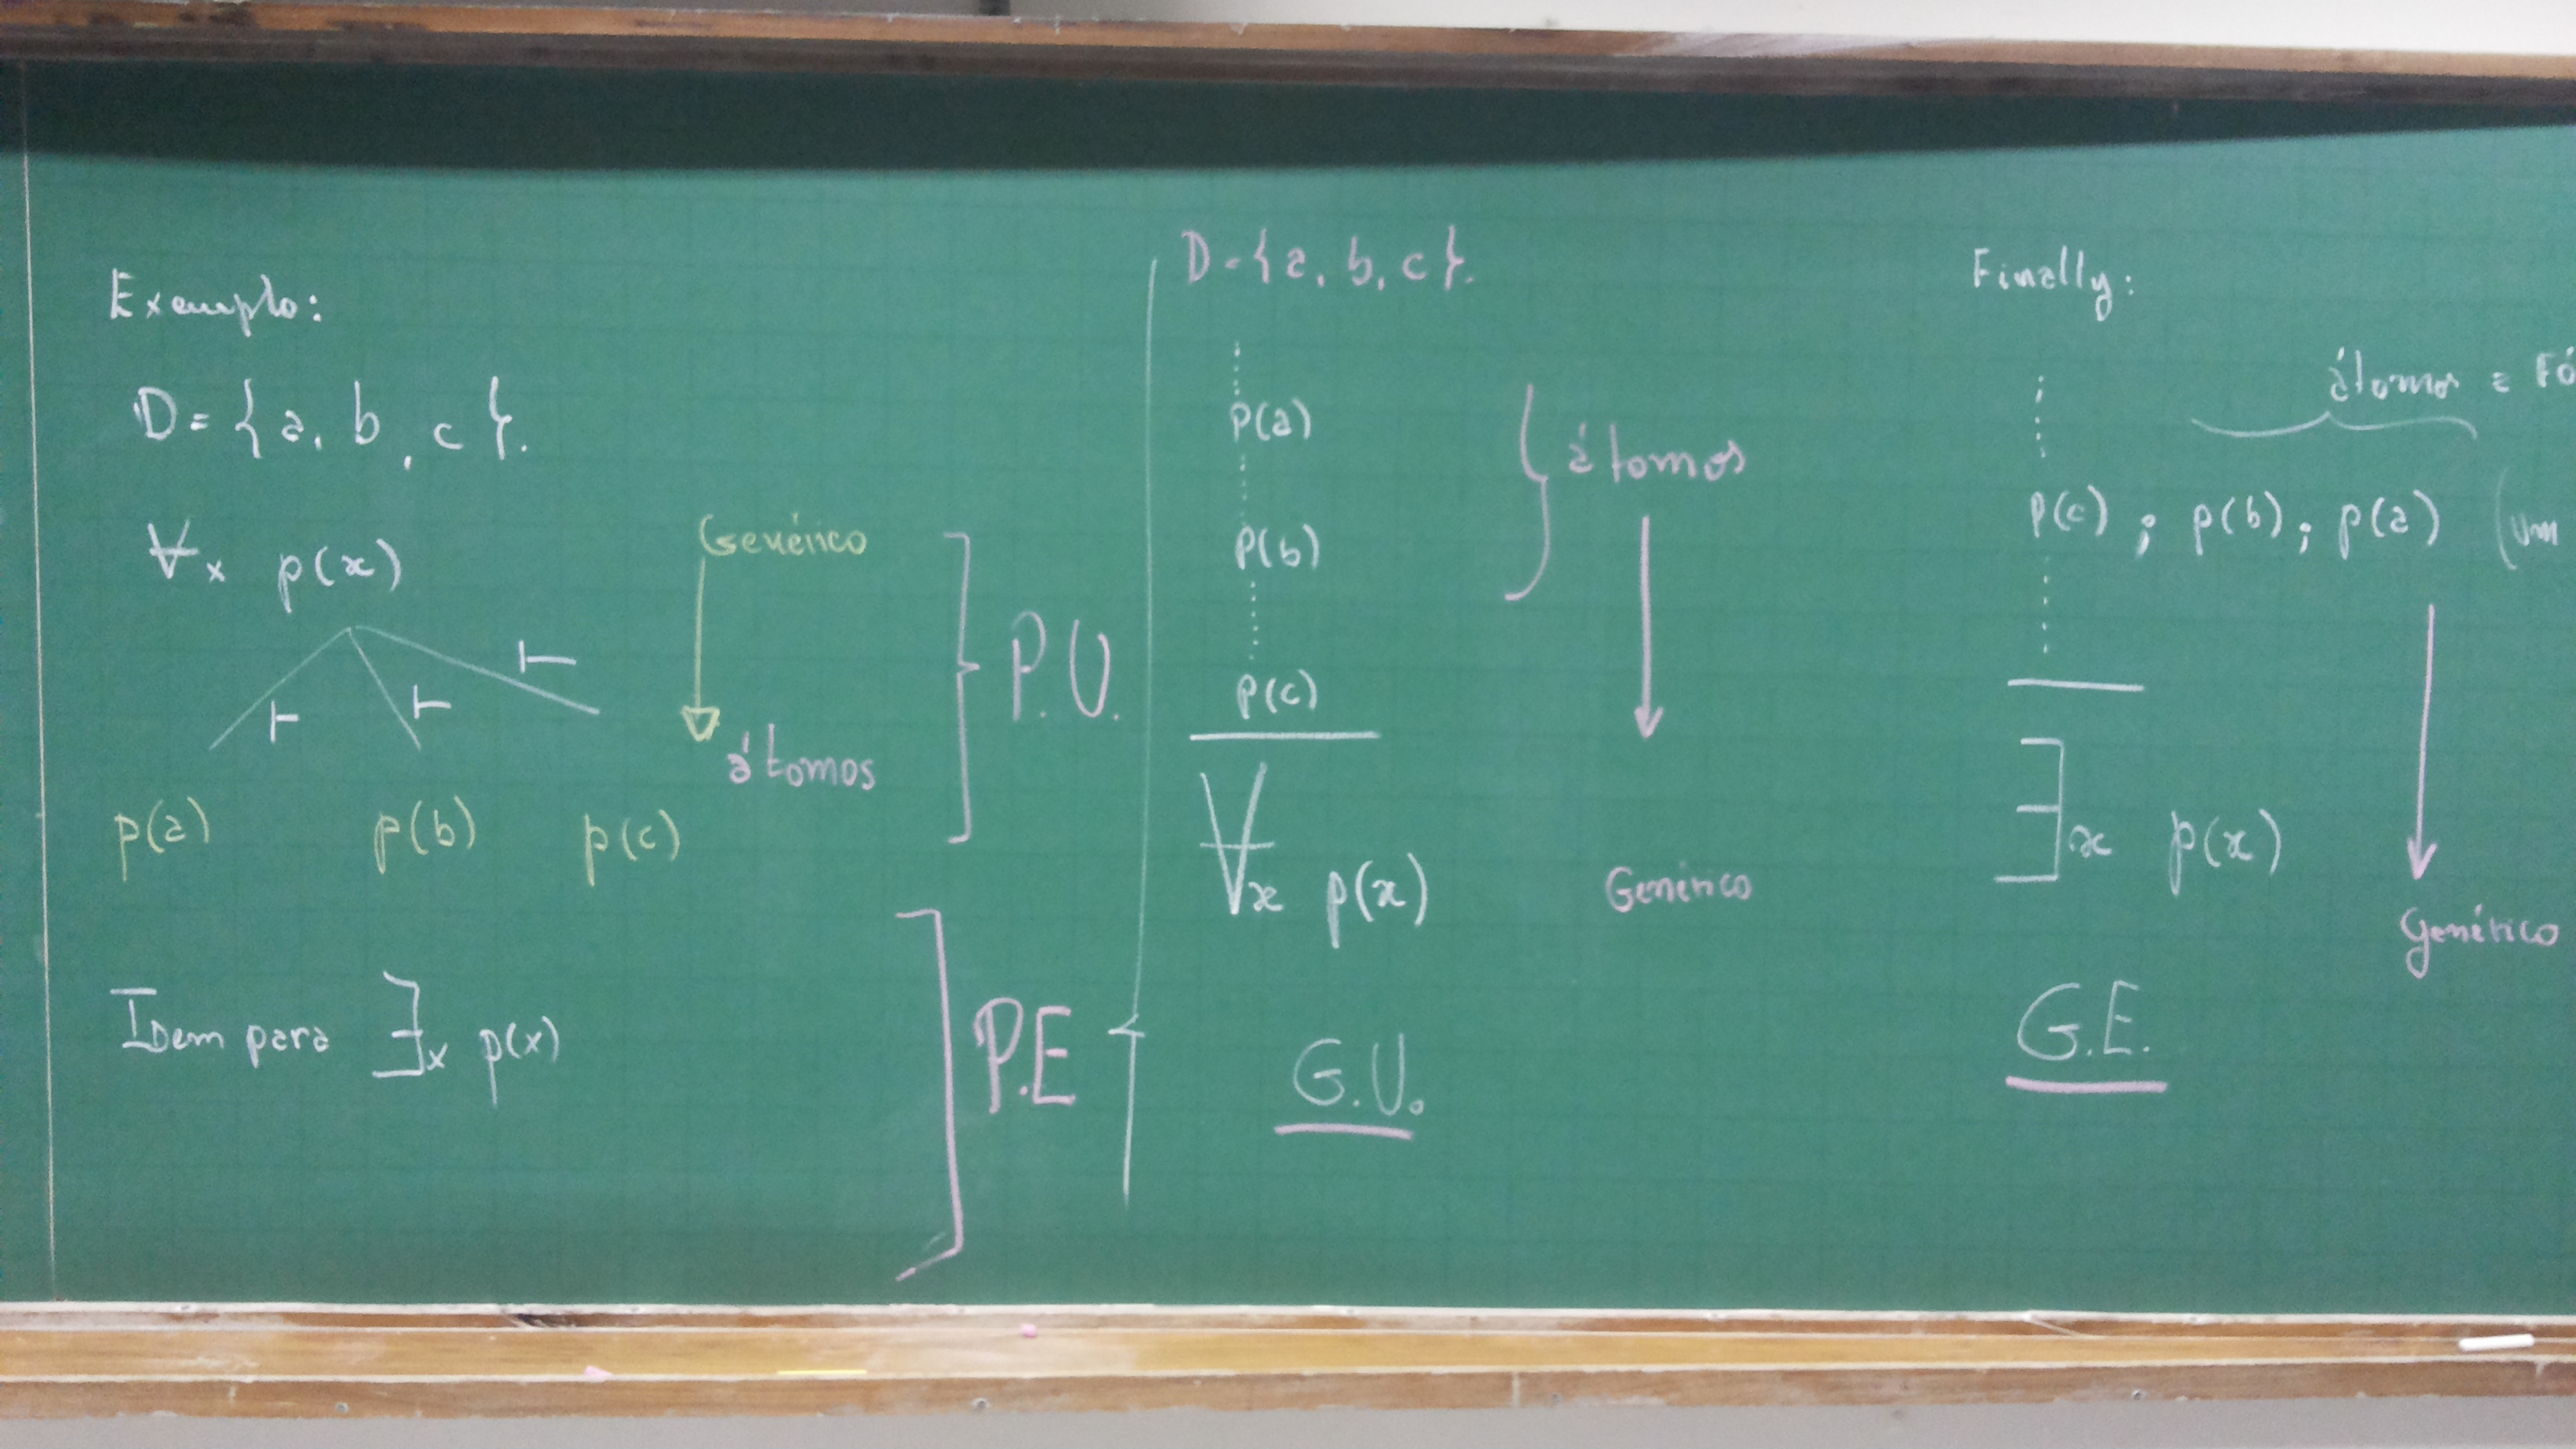 Exemplo:
D = {a, b, c}.
∀x p(x)
⊢ ⊢ ⊢
p(a) p(b) p(c)
Genérico
átomos
P.U.
Idem para ∃x p(x)
P.E
D = {a, b, c}.
p(a)
p(b)
p(c)
átomos
∀x p(x)
Genérico
G.U.
Finally:
átomos =
p(c) ; p(b) ; p(a) (um
∃x p(x)
Genérico
G.E.